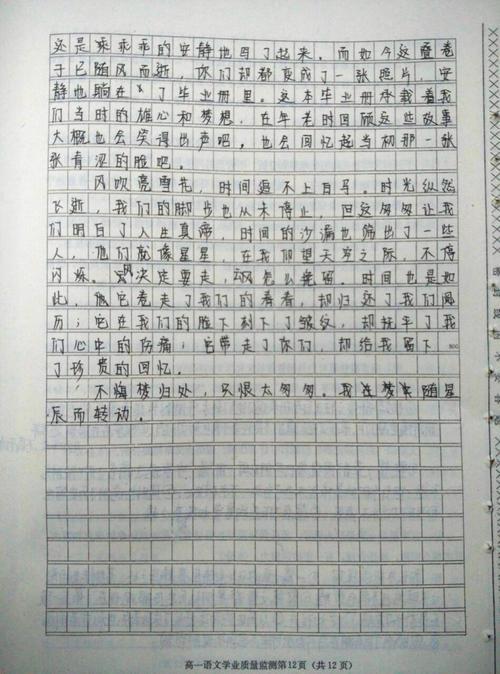 还是乖乖乖的安静地写了起来。而如今这叠卷
子已随风而逝，你们却都变成了一张照片，安
静地躺在了毕业册里。这本毕业册承载着我
们当时的雄心和梦想，在年老时回顾这些故事
大概也会笑得出声吧，也会回忆起当初那一张
张青涩的脸吧。
风吹亮雪花，时间追不上白马。时光纵然
飞逝，我们的脚步也从未停止，但这匆匆让我
们明白了人生真谛，时间的沙漏也筛出了一些
人，他们就像星星，在我仰望天空之际，不停
闪烁。决定要走，风怎么挽留。时间也是如
此，它卷走了我们的青春，却归还了我们阅
历；它在我们的脸下刻下了皱纹，却抚平了我
们心中的伤痛；它带走了你们，却给我留下
800
了珍贵的回忆。
不悔梦归处，只恨太匆匆。我在梦里随星
辰而转动。
高一语文学业质量监测第12页（共12页）